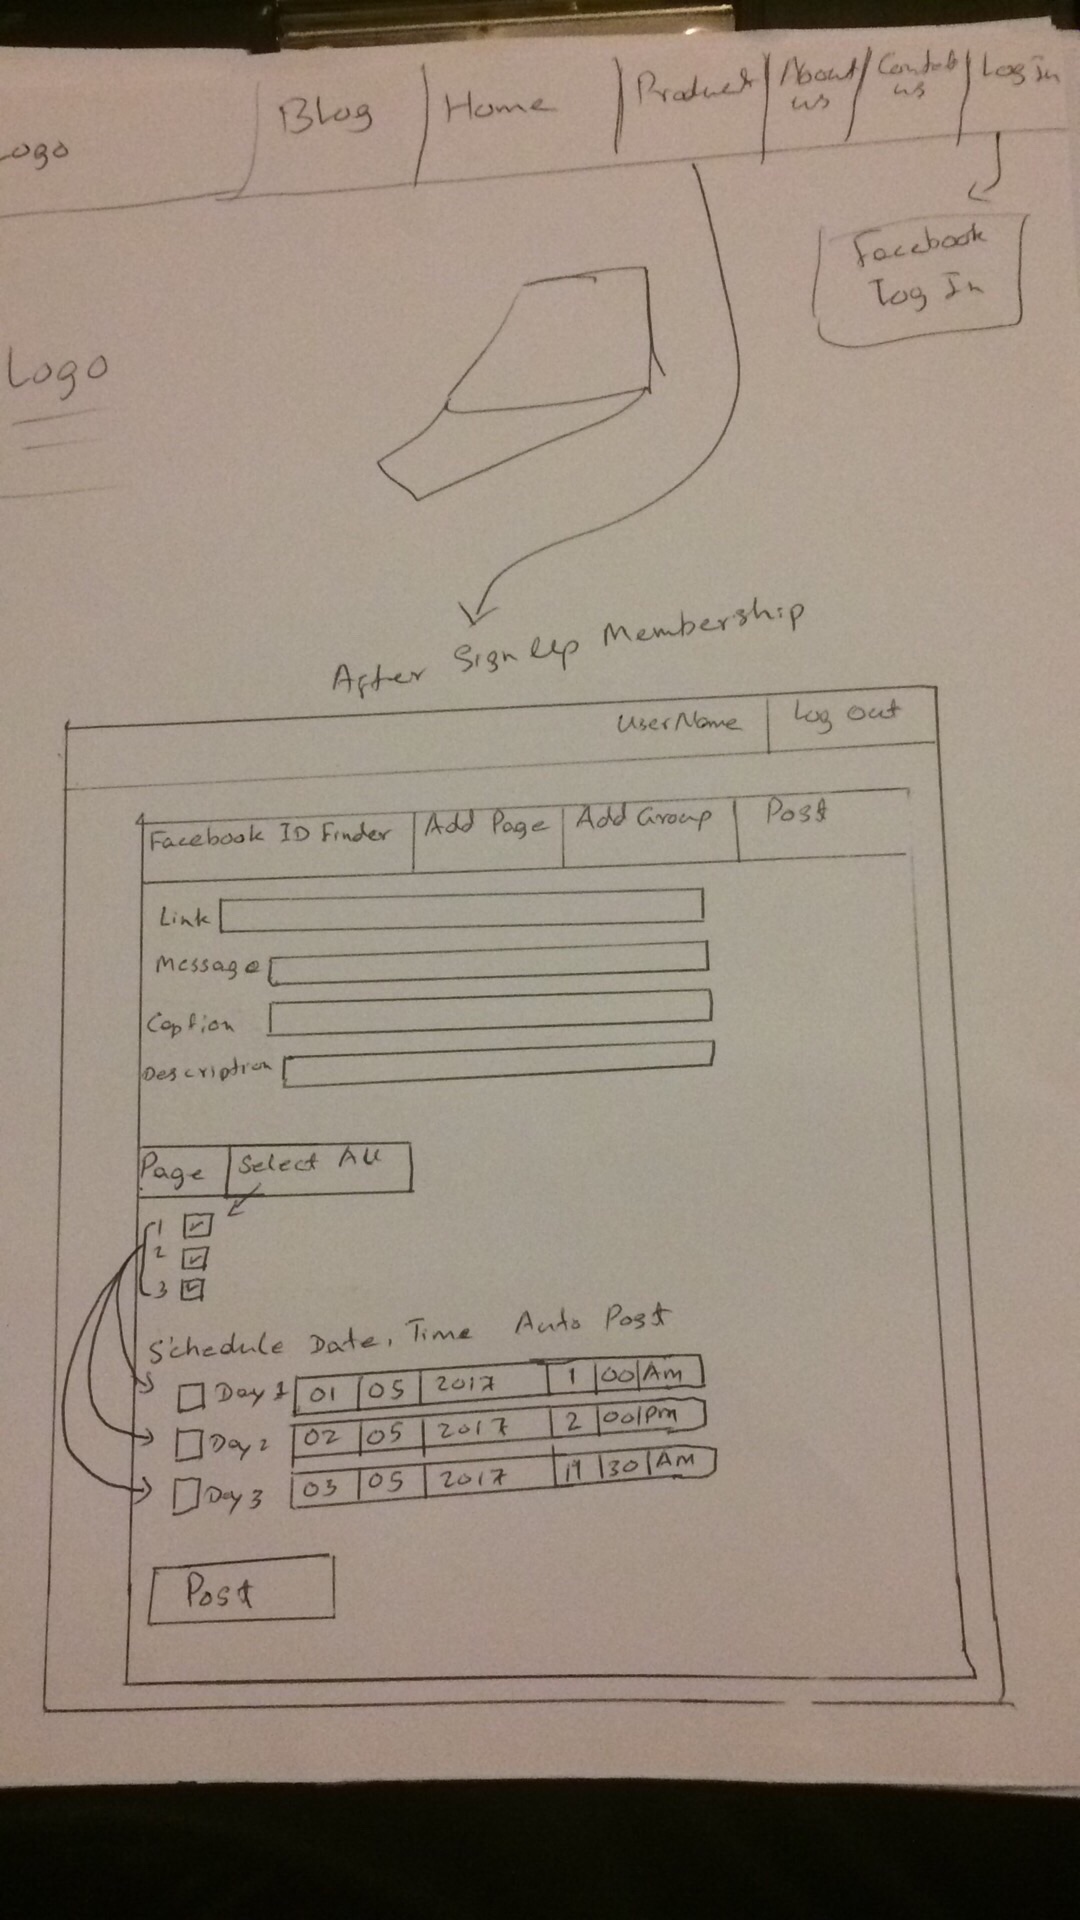 Logo
Blog
Home
Product
About
us
Contact
us
Log In
Facebook
Log In
Logo
After Sign Up Membership
UserName
Log out
Facebook ID Finder
Add Page
Add Group
Post
Link
Message
Caption
Description
Page
Select All
1
2
3
Schedule Date, Time Auto Post
Day 1 01 05 2017 1 00 Am
Day 2 02 05 2017 2 00 Pm
Day 3 03 05 2017 30 AM
Post